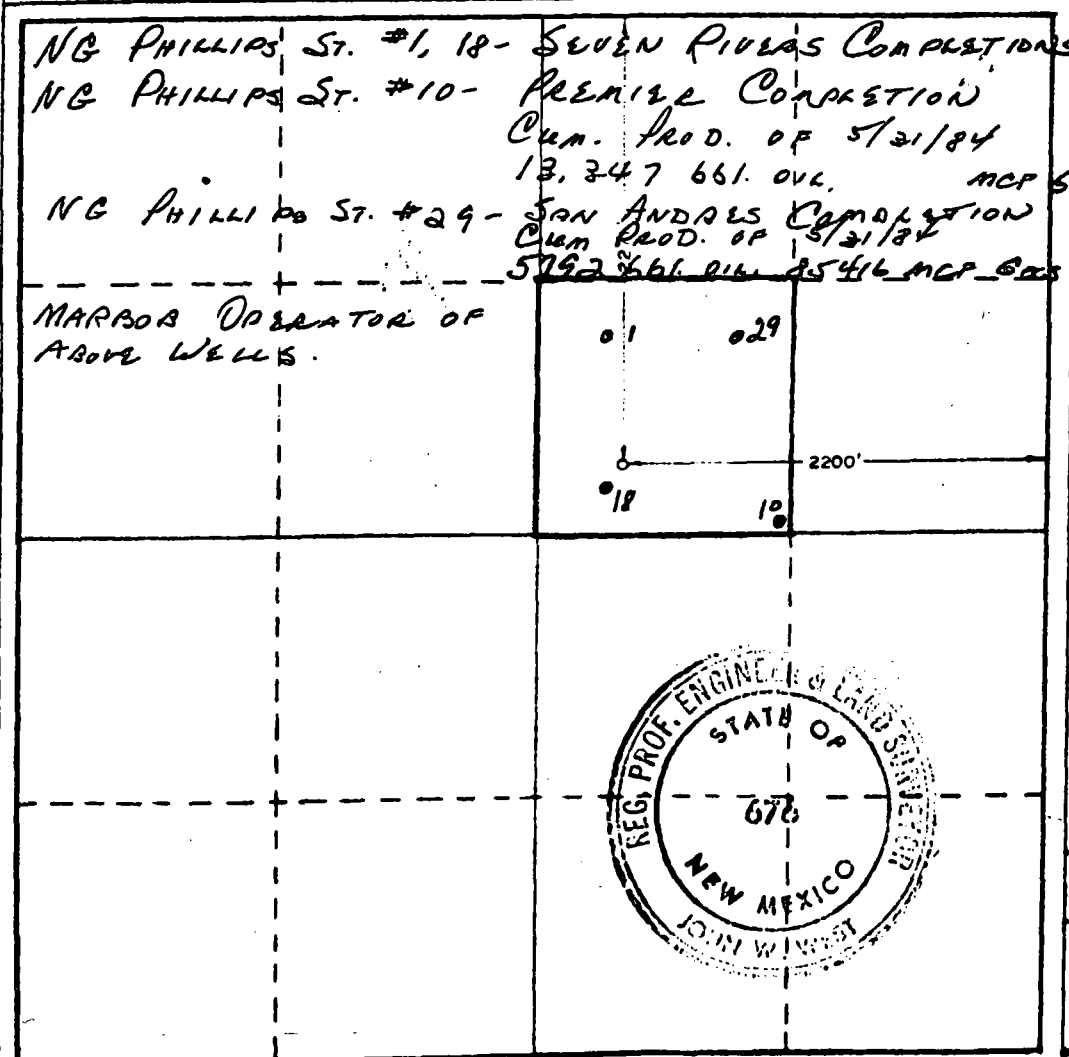 NG PHILLIPS ST. #1, 18- SEVEN RIVERS COMPLETIONS
NG PHILLIPS ST. #10- PREMIER COMPLETION
CUM. PROD. OF 5/31/84
13,347 bbl. OIL. MCF
NG PHILLIPS ST. #29- SAN ANDRES COMPLETION
CUM PROD. OF 5/31/84
bbl. OIL 85416 MCF GAS
MARBOB OPERATOR OF
ABOVE WELLS.
1
29
2200'
18
10
REG. PROF. ENGINEER & LAND SURVEYOR
STATE OF
676
NEW MEXICO
JOHN W. WEST